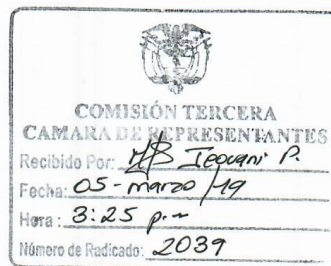 COMISIÓN TERCERA
CAMARA DE REPRESENTANTES
Recibido Por: Jeovani P.
Fecha: 05-marzo/19
Hora: 3:25 p.m
Número de Radicado: 2039